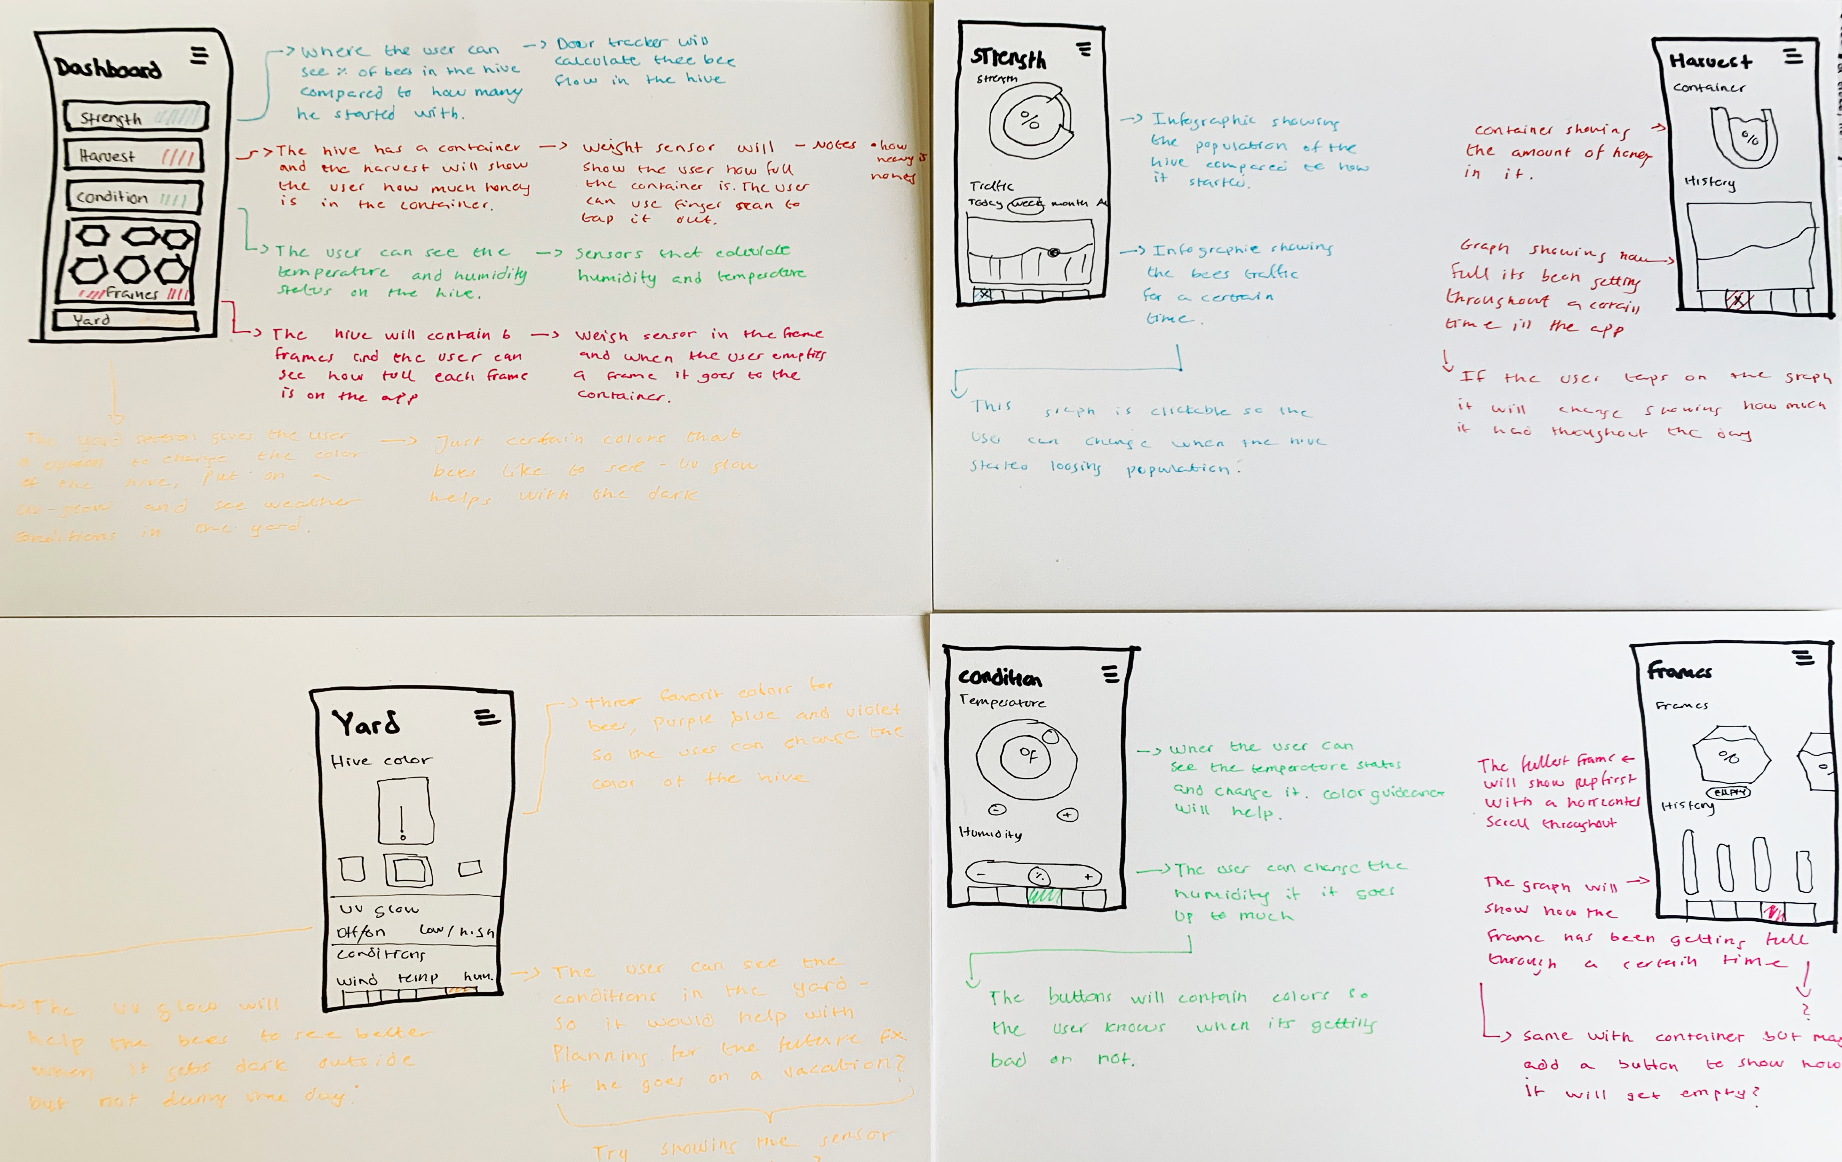 Dashboard
Strength
Harvest
Condition
Frames
Yard
Where the user can
see % of bees in the hive
compared to how many
he started with.
Door tracker will
calculate thee bee
flow in the hive
The hive has a container
and the harvest will show
the user how much honey
is in the container.
Weight sensor will
show the user how full
the container is. The user
can use finger scan to
tap it out.
- Notes • how
honey
The user can see the
temperature and humidity
status on the hive.
Sensors that calculate
humidity and temperature
The hive will contain 6
frames and the user can
see how full each frame
is on the app
Weigh sensor in the frame
and when the user empties
a frame it goes to the
container.
The yard section gives the user
to change the color
of the hive, put on a
uv-glow and see weather
conditions in the yard.
Just certain colors that
bees like to see - uv glow
helps with the dark
Strength
Strength
%
Traffic
Today week month
Infographic showing
the population of the
hive compared to how
it started.
Infographic showing
the bees traffic
for a certain
time.
This graph is clickable so the
user can change when the hive
started loosing population.
Harvest
Container
%
History
container showing
the amount of honey
in it.
Graph showing how
full its been getting
throughout a certain
time in the app
If the user taps on the graph
it will change showing how much
it had throughout the day
Yard
Hive color
UV glow
Off/on Low/high
Conditions
Wind temp hum.
three favorit colors for
bees, purple blue and violet
so the user can change the
color of the hive
The uv glow will
help the bees to see better
when it gets dark outside
but not during the day.
The user can see the
conditions in the yard -
so it would help with
Planning for the future Ex.
if he goes on a vacation?
Try showing the sensor
Condition
Temperature
°F
- +
Humidity
- % +
Wher the user can
see the temperature status
and change it. color guideance
will help.
The user can change the
humidity if it goes
up to much
The buttons will contain colors so
the user knows when its getting
bad or not.
Frames
Frames
%
empty
History
The fullest frame
will show up first
with a horizontal
scroll throughout
The graph will
show how the
frame has been getting full
through a certain time
?
Same with container but may
add a button to show how
it will get empty?